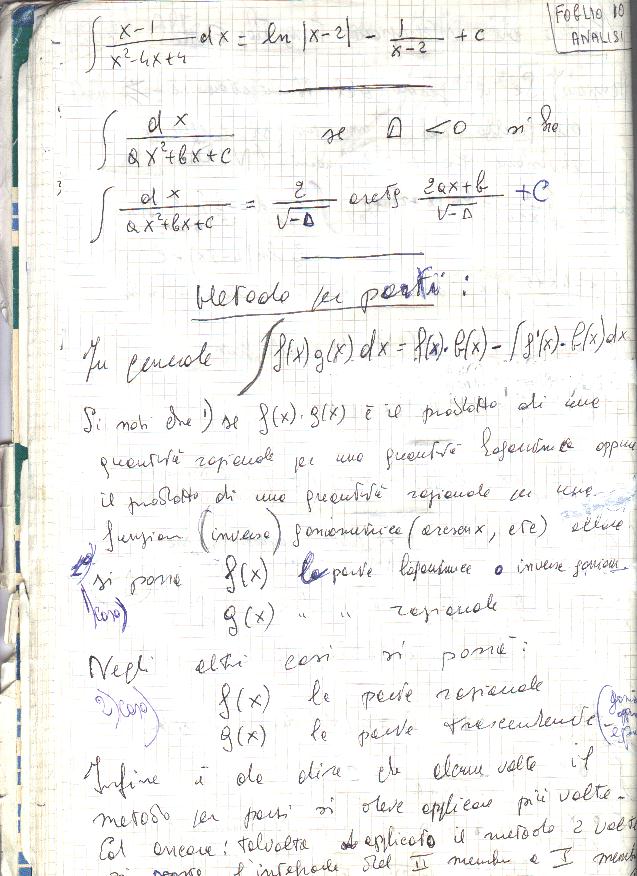 ∫ x-1 / x²-4x+4 dx = ln |x-2| - 1/(x-2) + c
FOGLIO 10
ANALISI
∫ dx / ax²+bx+c se Δ < 0 si ha
∫ dx / ax²+bx+c = 2/√-Δ arctg 2ax+b / √-Δ + C
Metodo per parti :
In generale ∫ f(x) g(x) dx = f(x)·G(x) - ∫ f'(x)·G(x) dx
Si noti che 1) se f(x)·g(x) è il prodotto di una
quantità razionale per una quantità logaritmica oppure
il prodotto di una quantità razionale per una
funzione (inversa) goniometrica (arcsenx, etc) allora
si pone f(x) la parte logaritmica o inversa goniom.
1)caso) g(x) " " razionale
Negli altri casi si pone :
2)caso) f(x) la parte razionale
g(x) la parte trascendente
Infine è da dire che alcune volte il
metodo per parti si deve applicare più volte.
Ed ancora: talvolta applicato il metodo 2 volte
si l'integrale del II membro a I